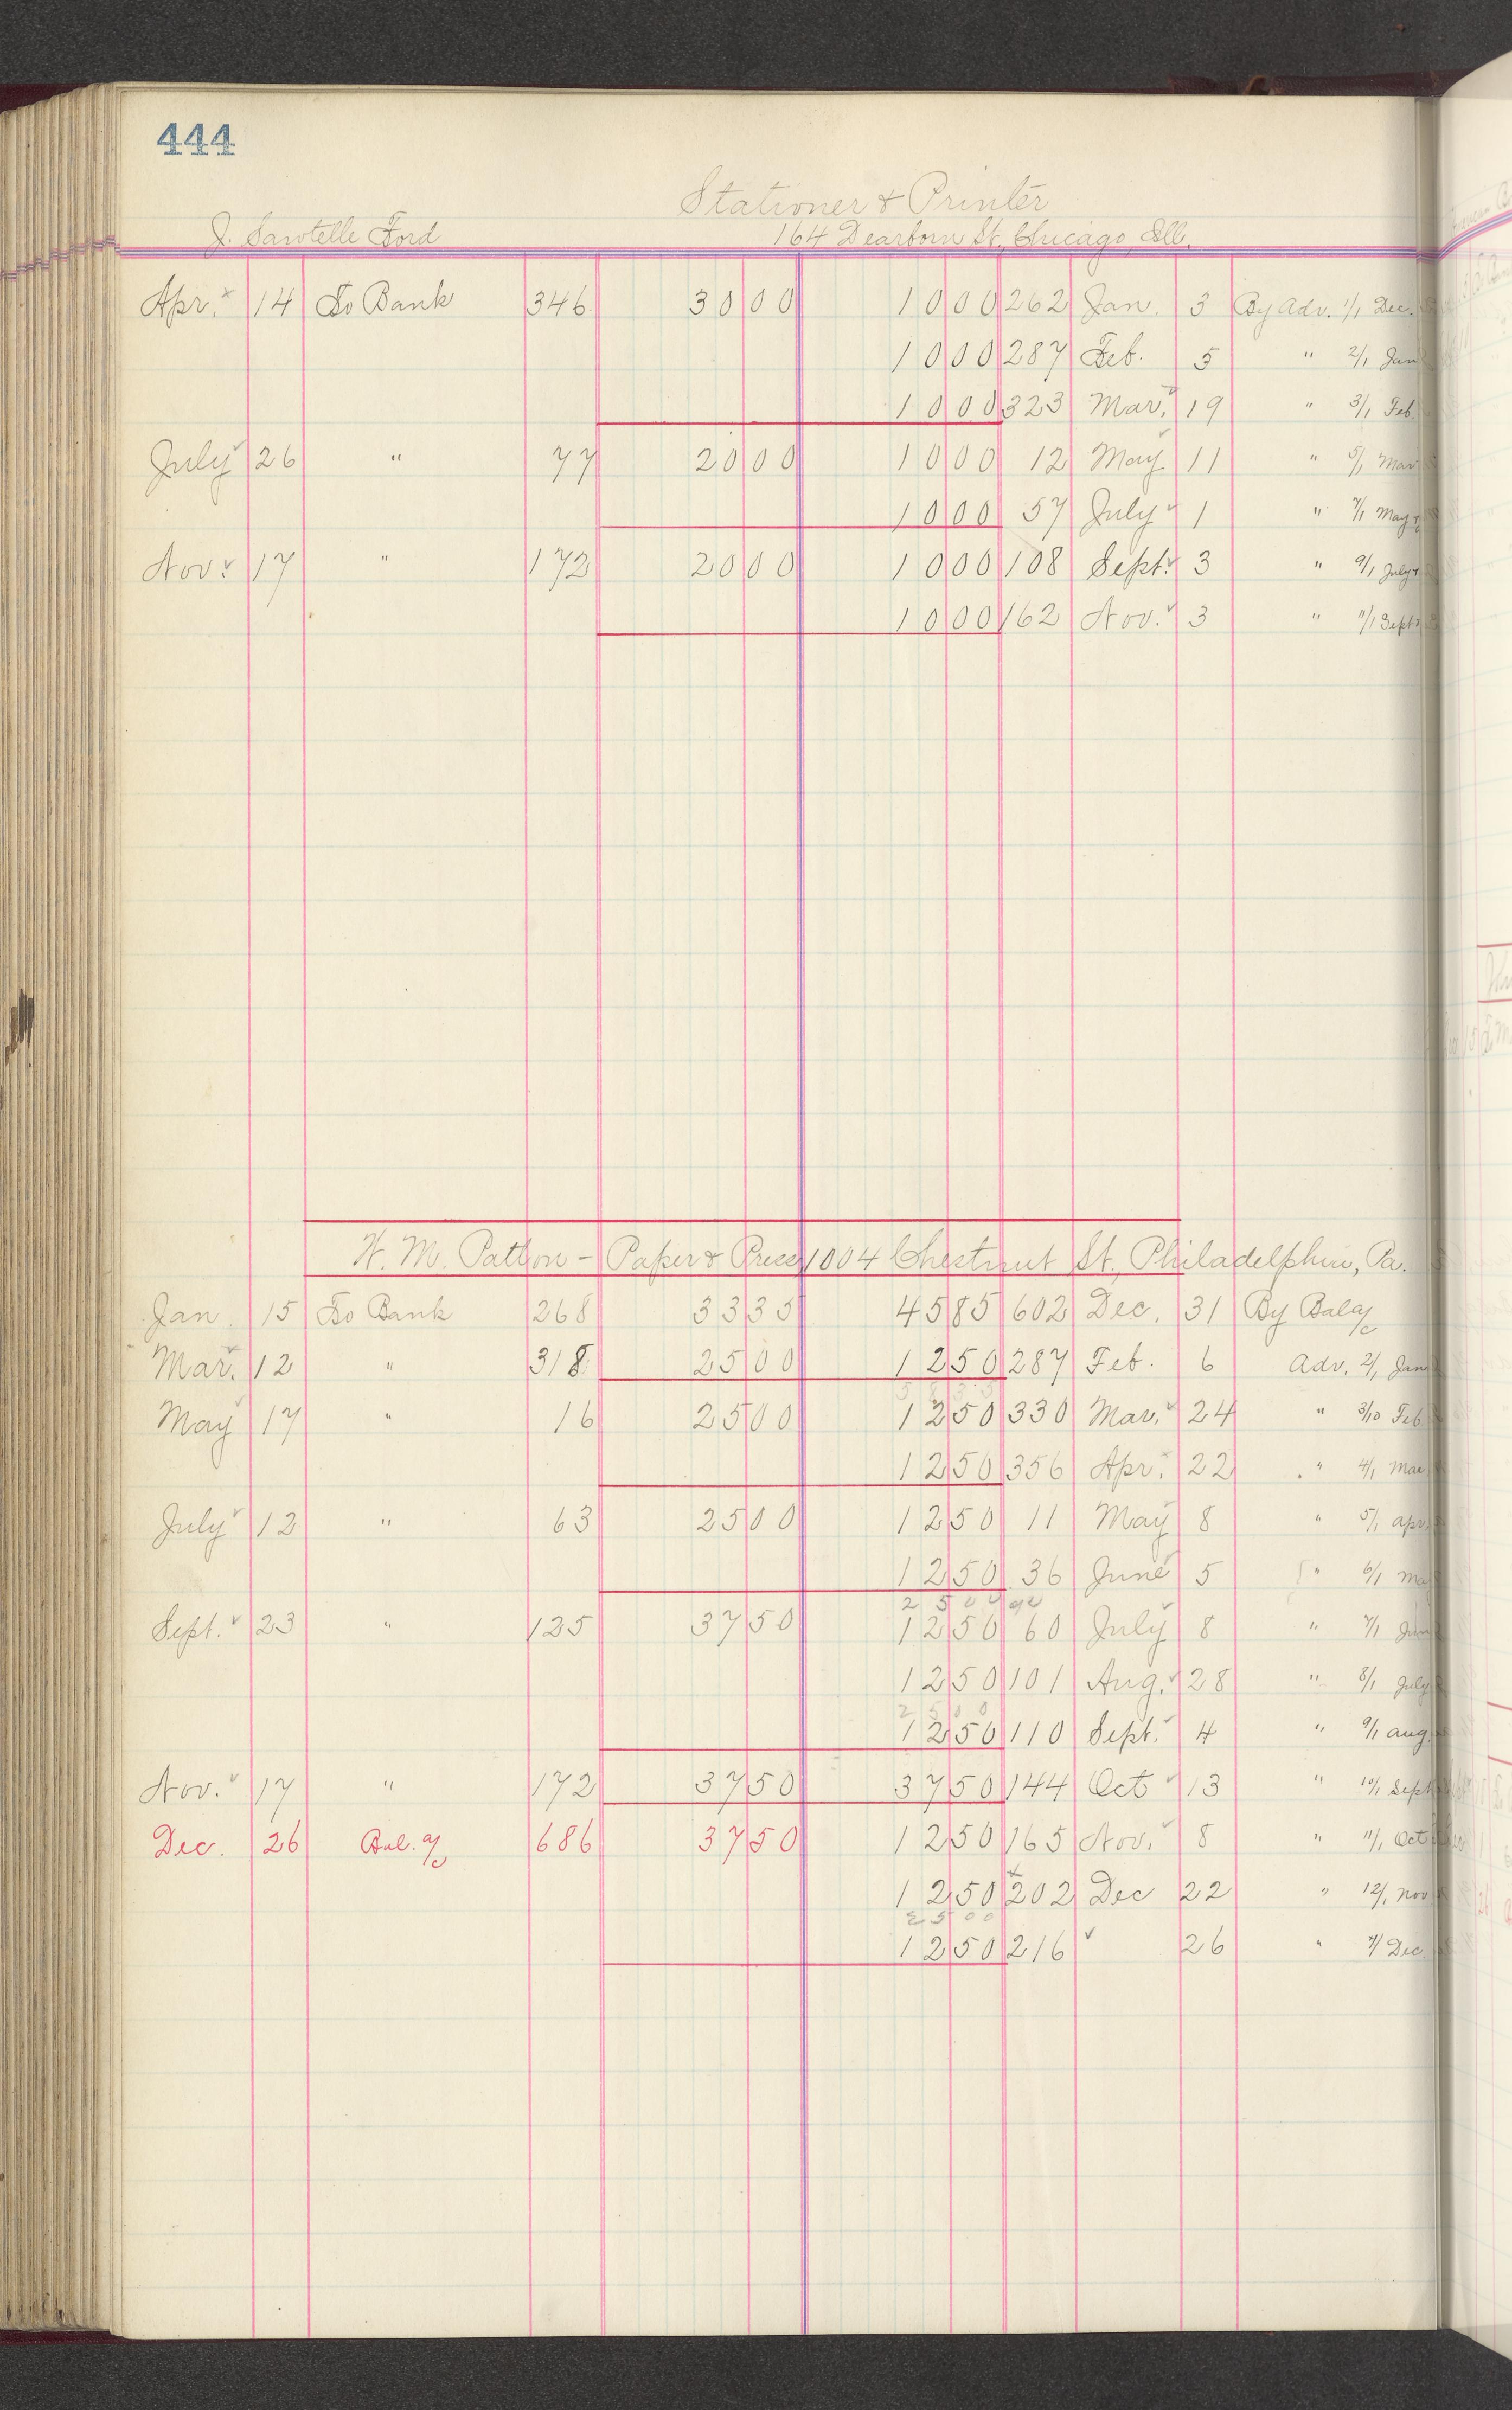 444
Stationer & Printer
J. Sawtelle Ford 164 Dearborn St. Chicago Ill.
Apr. 14 To Bank 346 30 00 10 00 262 Jan. 3 By Adv. 1/1 Dec.
10 00 287 Feb. 5 " 2/1 Jan
10 00 323 Mar. 19 " 3/1 Feb.
July 26 " 77 20 00 10 00 12 May 11 " 5/1 Mar
10 00 57 July 1 " 7/1 May
Nov. 17 " 172 20 00 10 00 108 Sept. 3 " 9/1 July
10 00 162 Nov. 3 " 11/1 Sept
W. M. Patton - Paper & Press 1004 Chestnut St., Philadelphia, Pa.
Jan. 15 To Bank 268 33 35 45 85 602 Dec. 31 By Bal a/c
Mar. 12 " 318 25 00 12 50 287 Feb. 6 Adv. 2/1 Jan
May 17 " 16 25 00 12 50 330 Mar. 24 " 3/10 Feb
12 50 356 Apr. 22 " 4/1 Mar
July 12 " 63 25 00 12 50 11 May 8 " 5/1 Apr
12 50 36 June 5 " 6/1 Ma
25 00
Sept. 23 " 125 37 50 12 50 60 July 8 " 7/1 Jun
12 50 101 Aug. 28 " 8/1 July
25 00
12 50 110 Sept. 4 " 9/1 Aug.
Nov. 17 " 172 37 50 37 50 144 Oct 13 " 10/1 Sept
Dec. 26 Bal. a/c 686 37 50 12 50 165 Nov. 8 " 11/1 Oct
12 50 202 Dec 22 " 12/1 Nov
25 00
12 50 216 26 " Dec.